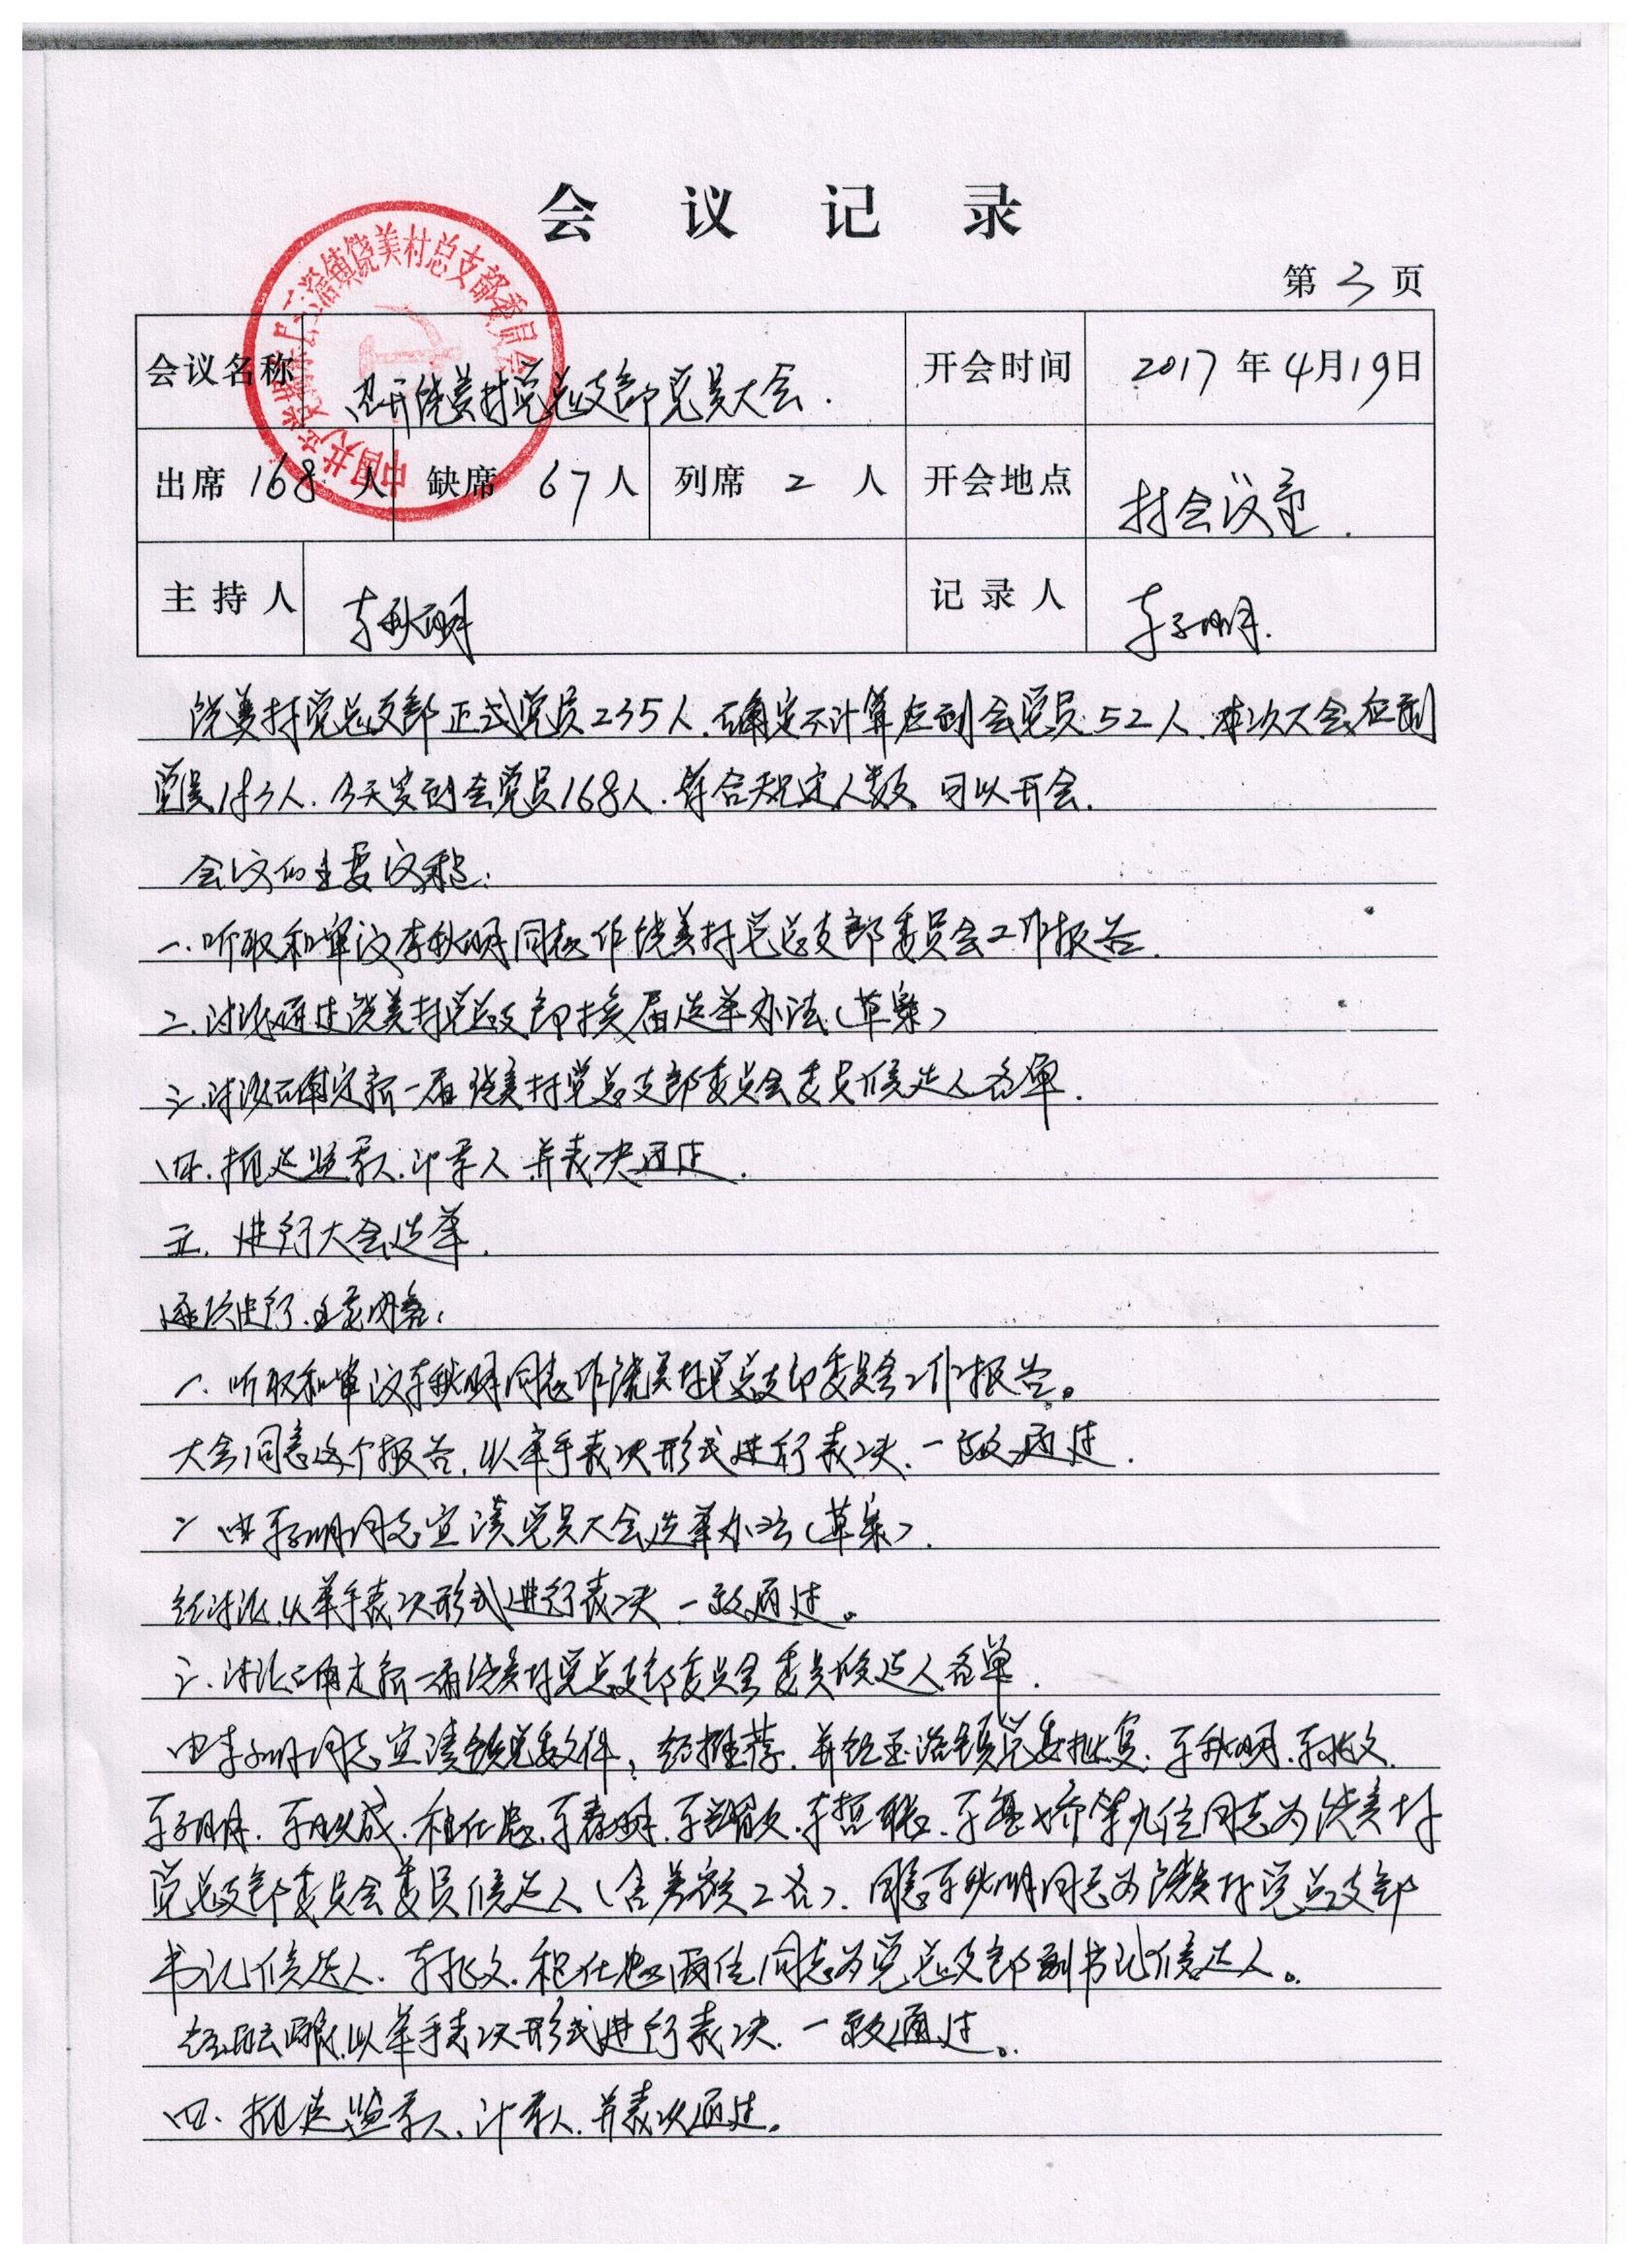 会议记录
第 3 页
会议名称 召开饶美村党总支部党员大会. 开会时间 2017年4月19日
出席 168 人 缺席 67 人 列席 2 人 开会地点 村会议室.
主持人 李秋明 记录人 李子明.
饶美村党总支部正式党员235人.确定不计算应到会党员52人.本次大会应到
党员183人.今天实到会党员168人.符合规定人数 可以开会.
会议的主要议程:
一.听取和审议李秋明同志作饶美村党总支部委员会工作报告.
二.讨论通过饶美村党总支部换届选举办法(草案)
三.讨论确定新一届饶美村党总支部委员会委员候选人名单.
四.推选监票人.计票人 并表决通过.
五.进行大会选举.
逐项进行.主要内容:
一.听取和审议李秋明同志作饶美村党总支部委员会工作报告。
大会同意这个报告,以举手表决形式进行表决.一致通过.
二 由李子明同志宣读党员大会选举办法(草案).
经讨论,以举手表决形式进行表决 一致通过。
三.讨论确定新一届饶美村党总支部委员会委员候选人名单.
由李子明同志宣读镇党委文件,经推荐.并经玉滘镇党委批复.李秋明.李挑文.
李子明.李成.程仕忠.李春明.李歆.李哲联.李娇等九位同志为饶美村
党总支部委员会委员候选人(含差额2名).同意李秋明同志为饶美村党总支部
书记候选人.李挑文.程仕忠两位同志为党总支部副书记候选人。
以举手表决形式进行表决.一致通过。
四.推选监票人、计票人.并表决通过。
中国共产党潮州市潮安区玉滘镇饶美村总支部委员会